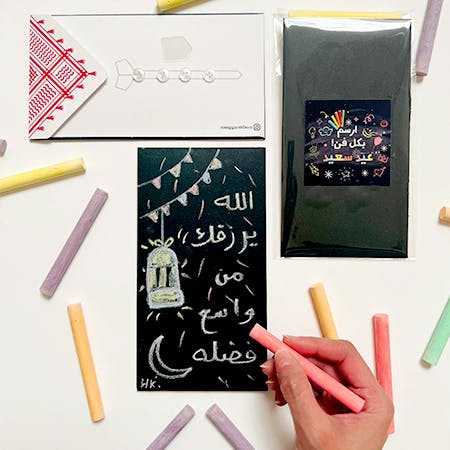 ارسم
بكل فن!
عيد سعيد
الله
يرزقك
من
واسع
فضله
HK.